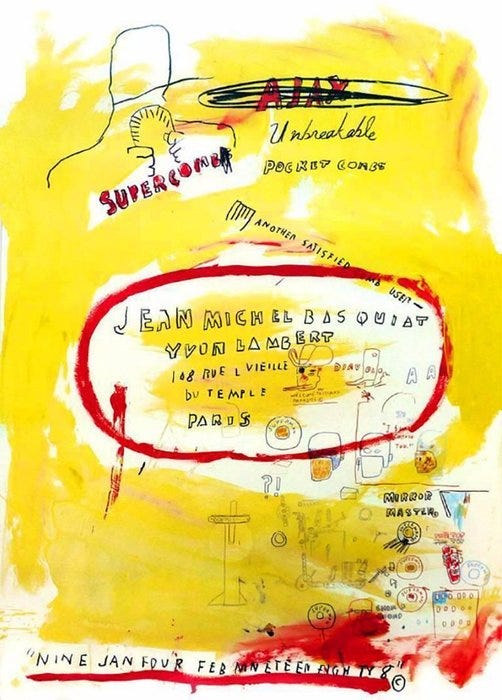 AJAX
Unbreakable
POCKET COMBS
SUPERCOMB
ANOTHER SATISFIED COMB USER-
JEAN MICHEL BASQUIAT
YVON LAMBERT
108 RUE L VIEILLE
DU TEMPLE
PARIS
A A
?!
MIRROR
MASTER,
"NINE JAN FOUR FEB NINETEEN EIGHTY 8"©